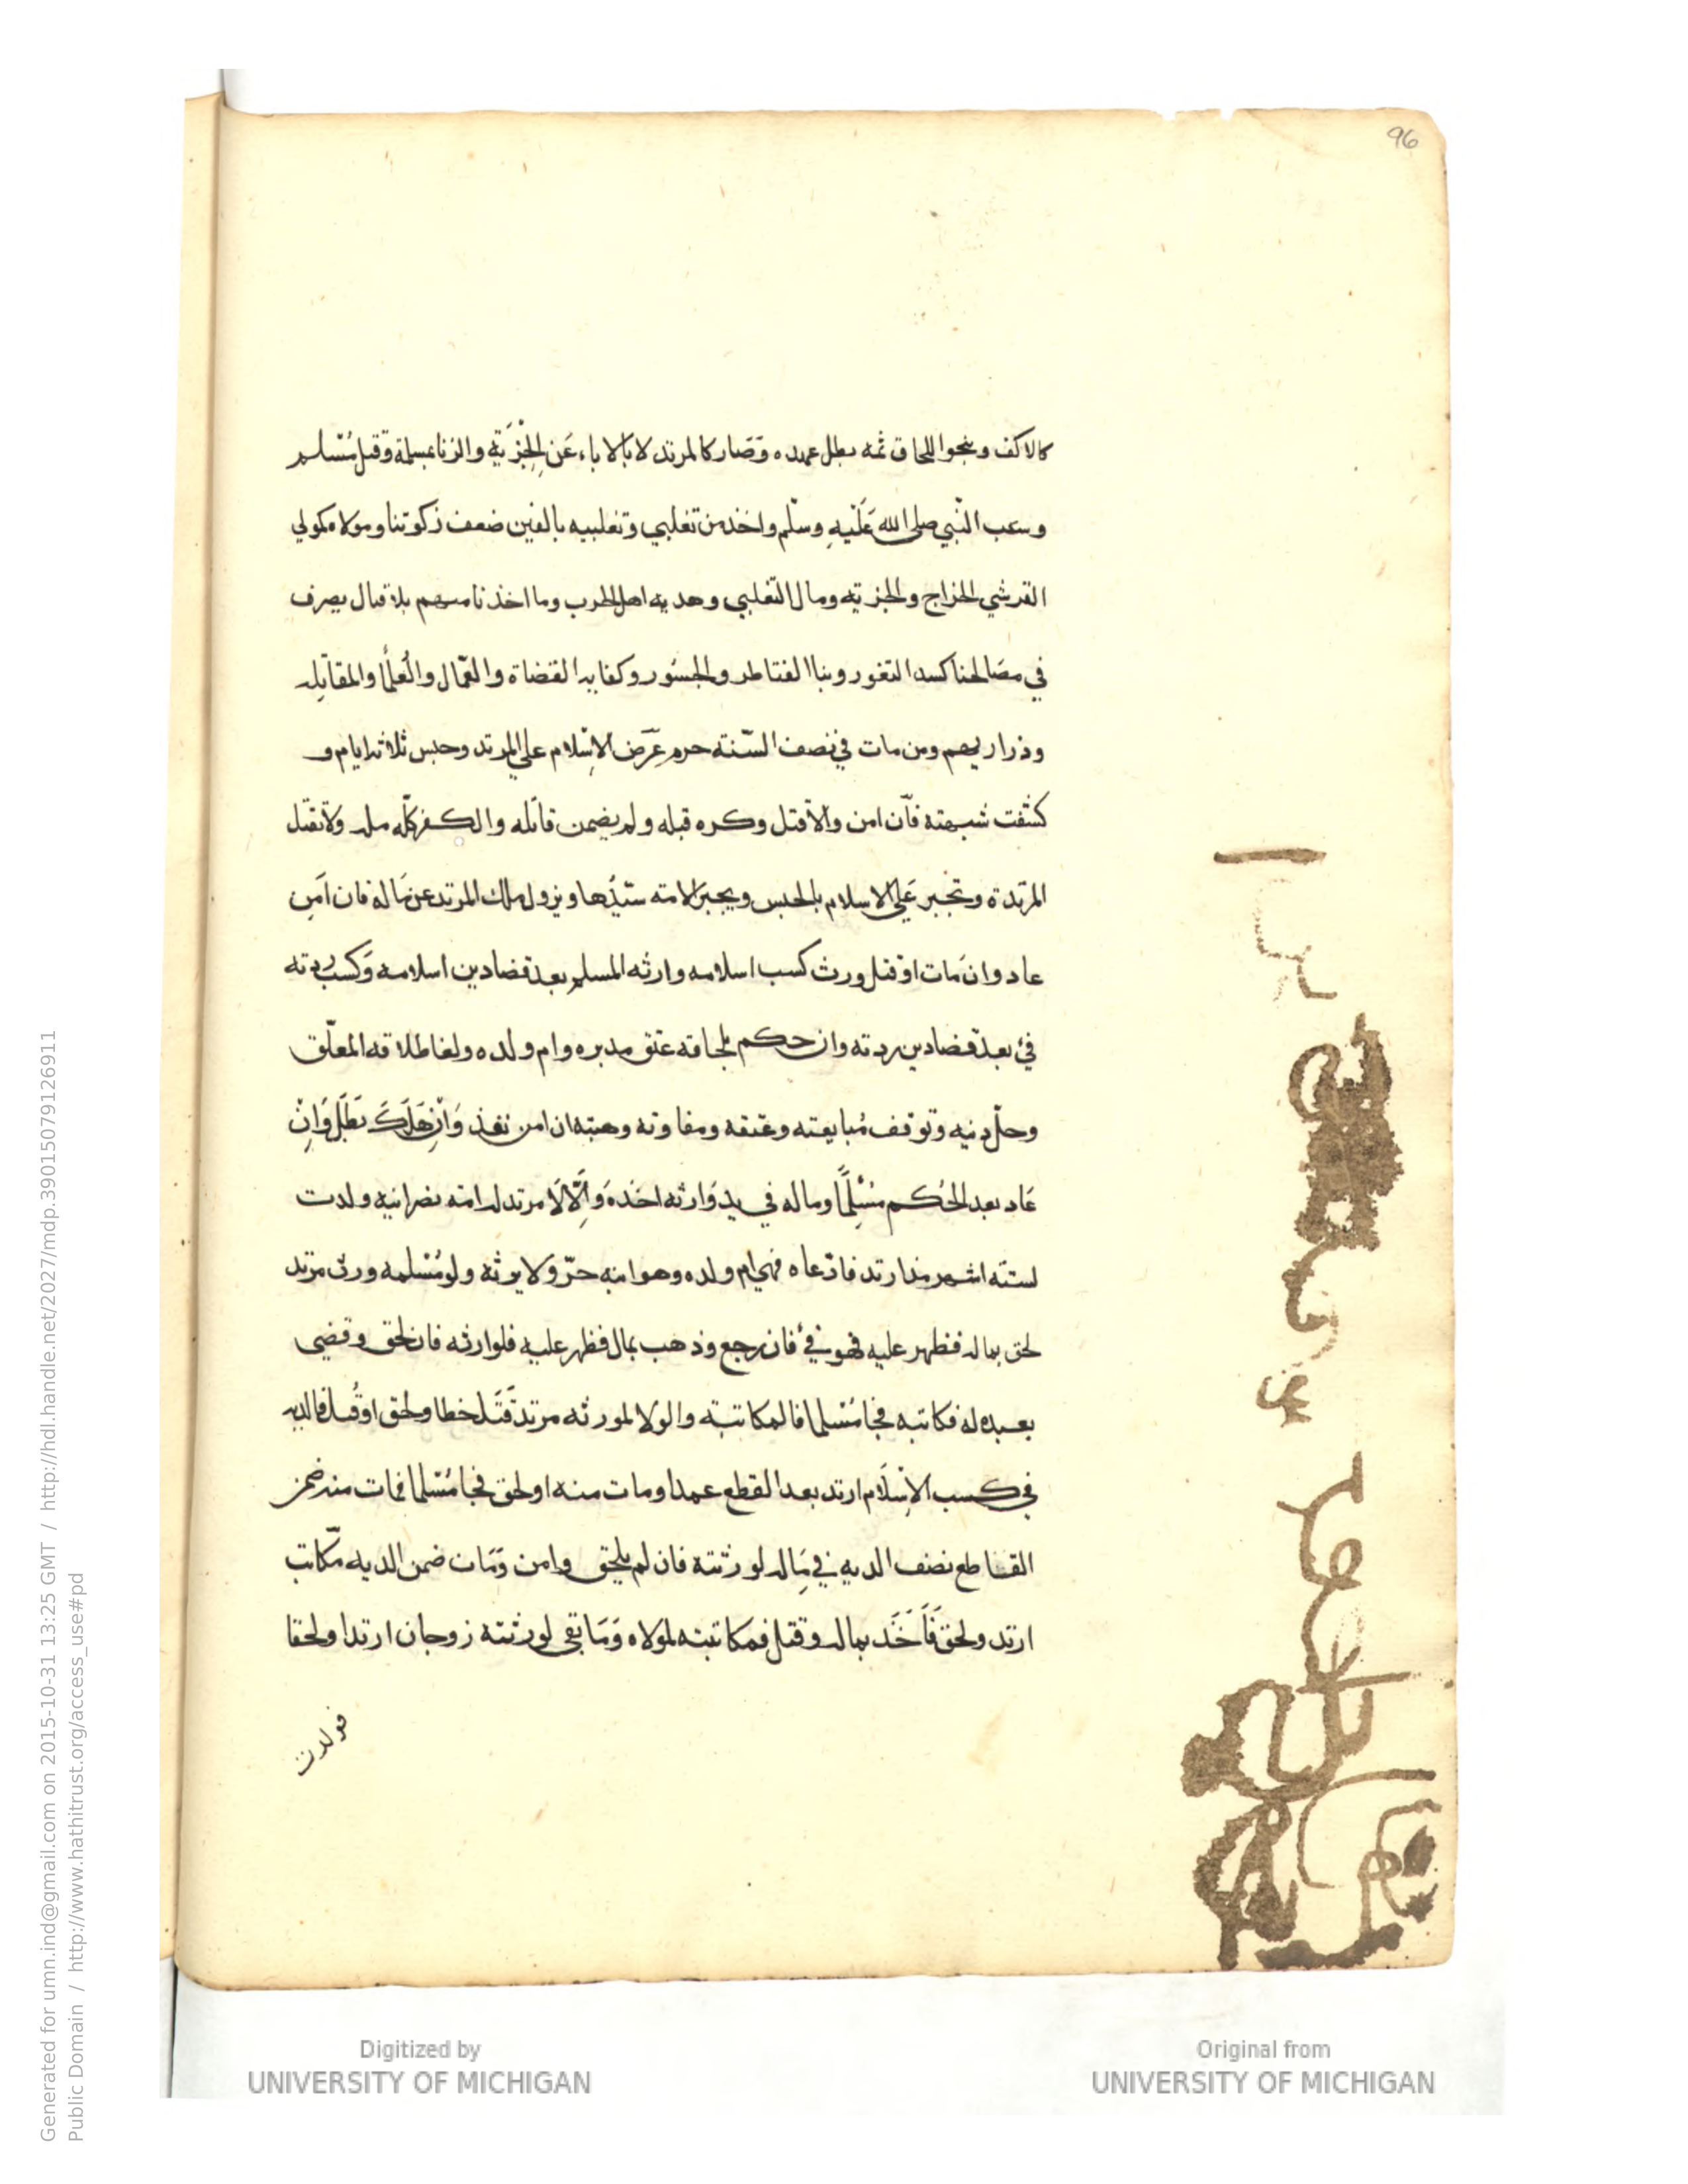 96
كالاكف وينجوا اللحاق ثمه بطل عهده وصار كالمرتد لا بالاباء عن الجزية والزنا بمسلمة وقتل مسلم
وسب النبي صلى الله عليه وسلم واخذ من تغلبي وتغلبيه بالغين ضعف زكوتنا ومولاه كمولي
القرشي الخراج والجزيه ومال التغلبي وهديه اهل الحرب وما اخذنا منهم بلا قتال يصرف
في مصالحنا كسد الثغور وبنا القناطر والجسور وكفايه القضاة والعمال والعلما والمقاتله
وذراريهم ومن مات في نصف السنة حرم عرض الاسلام علي المرتد وحبس ثلاثه ايام و
كشفت شبهته فان امن والا قتل وكره قبله ولم يضمن قاتله والكفر كله مله ولا تقتل
المرتدة وتجبر علي الاسلام بالحبس ويجبر الامه سيدها ويزول ملك المرتد عن ماله فان امن
عاد وان مات او قتل ورث كسب اسلامه وارثه المسلم بعد قضا دين اسلامه وكسب ردته
في بعد قضا دين ردته وان حكم بلحاقه عتق مدبره وام ولده ولغا طلاقه المعلق
وحل دينه وتوقف مبايعته وعتقه ومفاوته وهبته ان امن نفذ وان هلك بطل وان
عاد بعد الحكم مسلما وماله في يد وارثه اخذه والا لا مرتد له امه نصرانيه ولدت
لسته اشهر مذ ارتد فادعاه فهي ام ولده وهو ابنه حر ولا يرثه ولو مسلمه ورث مرتد
لحق بماله فظهر عليه فهو في فان رجع وذهب بمال فظهر عليه فلوارثه فان لحق وقضي
بعبده له فكاتبه فجا مسلما فالمكاتبة والولا لمورثه مرتد قتل خطا ولحق او قتل فالديه
في كسب الاسلام ارتد بعد القطع عمدا ومات منه او لحق فجا مسلما فمات منه ضمن
القاطع نصف الديه في ماله لورثته فان لم يلحق وامن ومات ضمن الديه مكاتب
ارتد ولحق فاخذ بماله وقتل فمكاتبته لمولاه وما بقي لورثته زوجان ارتدا ولحقا
فولدت
Digitized by
UNIVERSITY OF MICHIGAN
Original from
UNIVERSITY OF MICHIGAN
Generated for umn.ind@gmail.com on 2015-10-31 13:25 GMT / http://hdl.handle.net/2027/mdp.39015079126911
Public Domain / http://www.hathitrust.org/access_use#pd